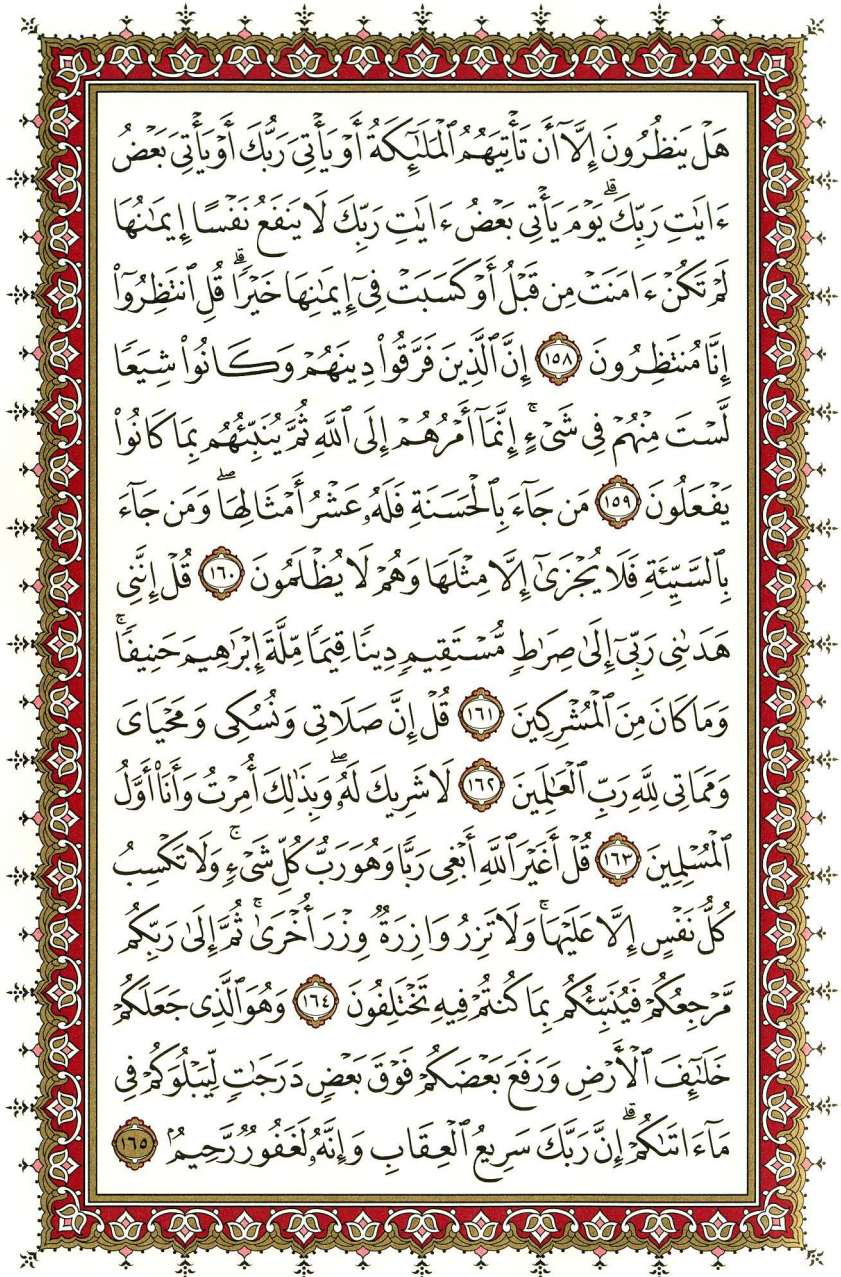 هَلْ يَنظُرُونَ إِلَّآ أَن تَأْتِيَهُمُ ٱلْمَلَـٰٓئِكَةُ أَوْ يَأْتِىَ رَبُّكَ أَوْ يَأْتِىَ بَعْضُ
ءَايَـٰتِ رَبِّكَ ۗ يَوْمَ يَأْتِى بَعْضُ ءَايَـٰتِ رَبِّكَ لَا يَنفَعُ نَفْسًا إِيمَـٰنُهَا
لَمْ تَكُنْ ءَامَنَتْ مِن قَبْلُ أَوْ كَسَبَتْ فِىٓ إِيمَـٰنِهَا خَيْرًا ۗ قُلِ ٱنتَظِرُوٓا۟
إِنَّا مُنتَظِرُونَ ١٥٨ إِنَّ ٱلَّذِينَ فَرَّقُوا۟ دِينَهُمْ وَكَانُوا۟ شِيَعًا
لَّسْتَ مِنْهُمْ فِى شَىْءٍ ۚ إِنَّمَآ أَمْرُهُمْ إِلَى ٱللَّهِ ثُمَّ يُنَبِّئُهُم بِمَا كَانُوا۟
يَفْعَلُونَ ١٥٩ مَن جَآءَ بِٱلْحَسَنَةِ فَلَهُۥ عَشْرُ أَمْثَالِهَا ۖ وَمَن جَآءَ
بِٱلسَّيِّئَةِ فَلَا يُجْزَىٰٓ إِلَّا مِثْلَهَا وَهُمْ لَا يُظْلَمُونَ ١٦٠ قُلْ إِنَّنِى
هَدَىٰنِى رَبِّىٓ إِلَىٰ صِرَٰطٍ مُّسْتَقِيمٍ دِينًا قِيَمًا مِّلَّةَ إِبْرَٰهِيمَ حَنِيفًا ۚ
وَمَا كَانَ مِنَ ٱلْمُشْرِكِينَ ١٦١ قُلْ إِنَّ صَلَاتِى وَنُسُكِى وَمَحْيَاىَ
وَمَمَاتِى لِلَّهِ رَبِّ ٱلْعَـٰلَمِينَ ١٦٢ لَا شَرِيكَ لَهُۥ ۖ وَبِذَٰلِكَ أُمِرْتُ وَأَنَا۠ أَوَّلُ
ٱلْمُسْلِمِينَ ١٦٣ قُلْ أَغَيْرَ ٱللَّهِ أَبْغِى رَبًّا وَهُوَ رَبُّ كُلِّ شَىْءٍ ۚ وَلَا تَكْسِبُ
كُلُّ نَفْسٍ إِلَّا عَلَيْهَا ۚ وَلَا تَزِرُ وَازِرَةٌ وِزْرَ أُخْرَىٰ ۚ ثُمَّ إِلَىٰ رَبِّكُم
مَّرْجِعُكُمْ فَيُنَبِّئُكُم بِمَا كُنتُمْ فِيهِ تَخْتَلِفُونَ ١٦٤ وَهُوَ ٱلَّذِى جَعَلَكُمْ
خَلَـٰٓئِفَ ٱلْأَرْضِ وَرَفَعَ بَعْضَكُمْ فَوْقَ بَعْضٍ دَرَجَـٰتٍ لِّيَبْلُوَكُمْ فِى
مَآ ءَاتَىٰكُمْ ۗ إِنَّ رَبَّكَ سَرِيعُ ٱلْعِقَابِ وَإِنَّهُۥ لَغَفُورٌ رَّحِيمٌۢ ١٦٥